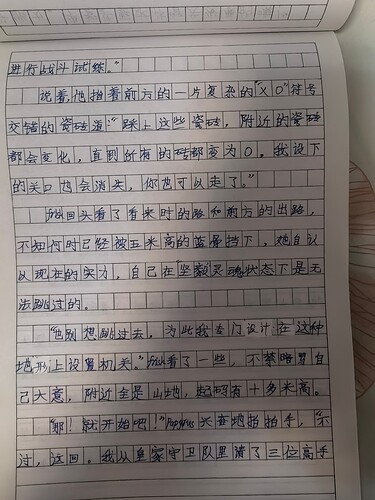 进行战斗试练。"
说着,他指着前方的一片复杂的"X O"符号
交错的瓷砖道:"踩上这些瓷砖,附近的瓷砖
都会变化,直到所有的砖都变为O。我设下
的关口也会消失,你也可以走了。"
回头看了看来时的路和前方的出路,
不知何时已经被五米高的蓝骨挡下,她自认
以现在的实力,自己在"坚毅"灵魂状态下是无
法跳过的。
"也别想跳过去,为此我专门设计在这种
地形上设置机关。"看了一些,不禁暗骂自
己大意,附近全是山地,起码有十多米高。
"那!就开始吧!"Papyrus兴奋地拍拍手,"不
过,这回。我从皇家守卫队里请了三位高手